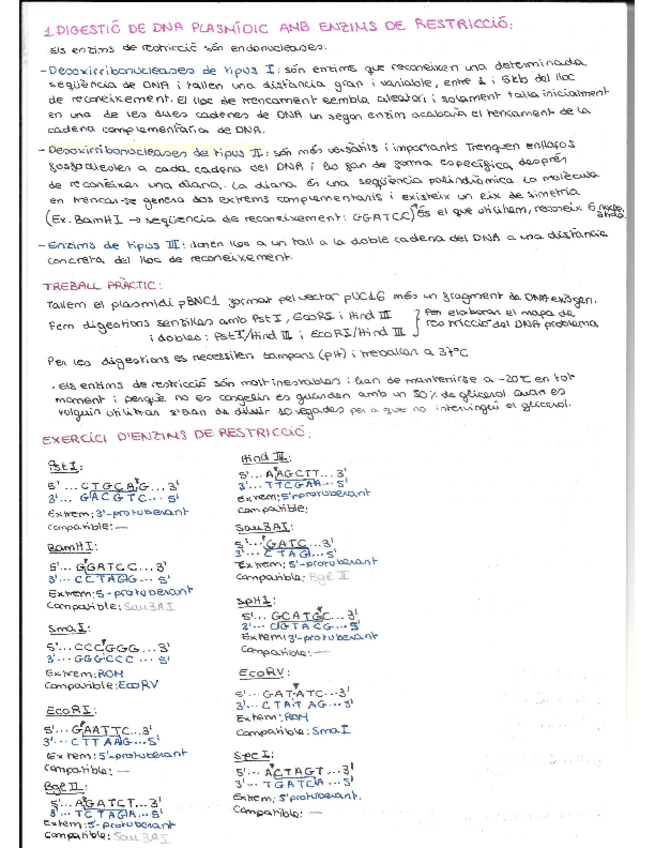 1. DIGESTIÓ DE DNA PLASMÍDIC AMB ENZIMS DE RESTRICCIÓ:
Els enzims de restricció són endonucleases:
- Desoxirribonucleases de tipus I: són enzims que reconeixen una determinada
seqüència de DNA i tallen una distància gran i variable, entre 1 i 5kb del lloc
de reconeixement. El lloc de trencament sembla aleatori i solament talla inicialment
en una de les dues cadenes de DNA. un segon enzim acabaria el trencament de la
cadena complementària de DNA.
- Desoxirribonucleases de tipus II: són més versàtils i importants Trenquen enllaços
fosfodièster a cada cadena del DNA i ho fan de forma específica, després
de reconèixer una diana. La diana és una seqüència palindròmica. La molècula
en trencar-se genera dos extrems complementaris i existeix un eix de simetria
(Ex. BamHI → seqüència de reconeixement: GGATCC) És el que utilitzem, reconeix 6
- Enzims de tipus III: donen lloc a un tall a la doble cadena del DNA a una distància
concreta del lloc de reconeixement.
TREBALL PRÀCTIC:
Tallem el plasmidi pBNC1 format pel vector pUC16 més un fragment de DNA exògen.
Fem digestions senzilles amb PstI, EcoRI i Hind III
i dobles: PstI/Hind III i EcoRI/Hind III
Per elaborar el mapa de
restricció del DNA problema
Per les digestions es necessiten tampons (pH) i treballar a 37ºC
· Els enzims de restricció són molt inestables i han de mantenir-se a -20ºC en tot
moment i perquè no es congelin es guarden amb un 50% de glicerol. Quan es
vulguin utilitzar s'han de diluir 10 vegades per a que no intervingui el glicerol.
EXERCICI D'ENZIMS DE RESTRICCIÓ:
PstI:
5'... CTGCAG...3'
3'... GACGTC... 5'
Extrem: 3'-protuberant
Compatible: —
BamHI:
5'... GGATCC...3'
3'... CCTAGG... 5'
Extrem: 5-protuberant
Compatible: Sau3AI
SmaI:
5'... CCCGGG...3'
3'... GGGCCC... 5'
Extrem: ROM
Compatible: EcoRV
EcoRI:
5'... GAATTC...3'
3'... CTTAAG...5'
Extrem: 5'-protuberant
Compatible: —
Bgl II:
5'... AGATCT...3'
3'... TCTAGA...5'
Extrem: 5'-protuberant
Compatible: Sau3AI
Hind III:
5'... AAGCTT...3'
3'... TTCGAA...5'
Extrem: 5'-protuberant
Compatible:
Sau3AI:
5'... GATC...3'
3'... CTAG...5'
Extrem: 5'-protuberant
Compatible: Bgl II
SpHI:
5'... GCATGC...3'
3'... CGTACG...5'
Extrem: 3'-protuberant
Compatible: —
EcoRV:
5'... GATATC...3'
3'... CTATAG...5'
Extem: ROM
Compatible: SmaI
SpeI:
5'... ACTAGT...3'
3'... TGATCA...5'
Extrem: 5'protuberant.
Compatible: —